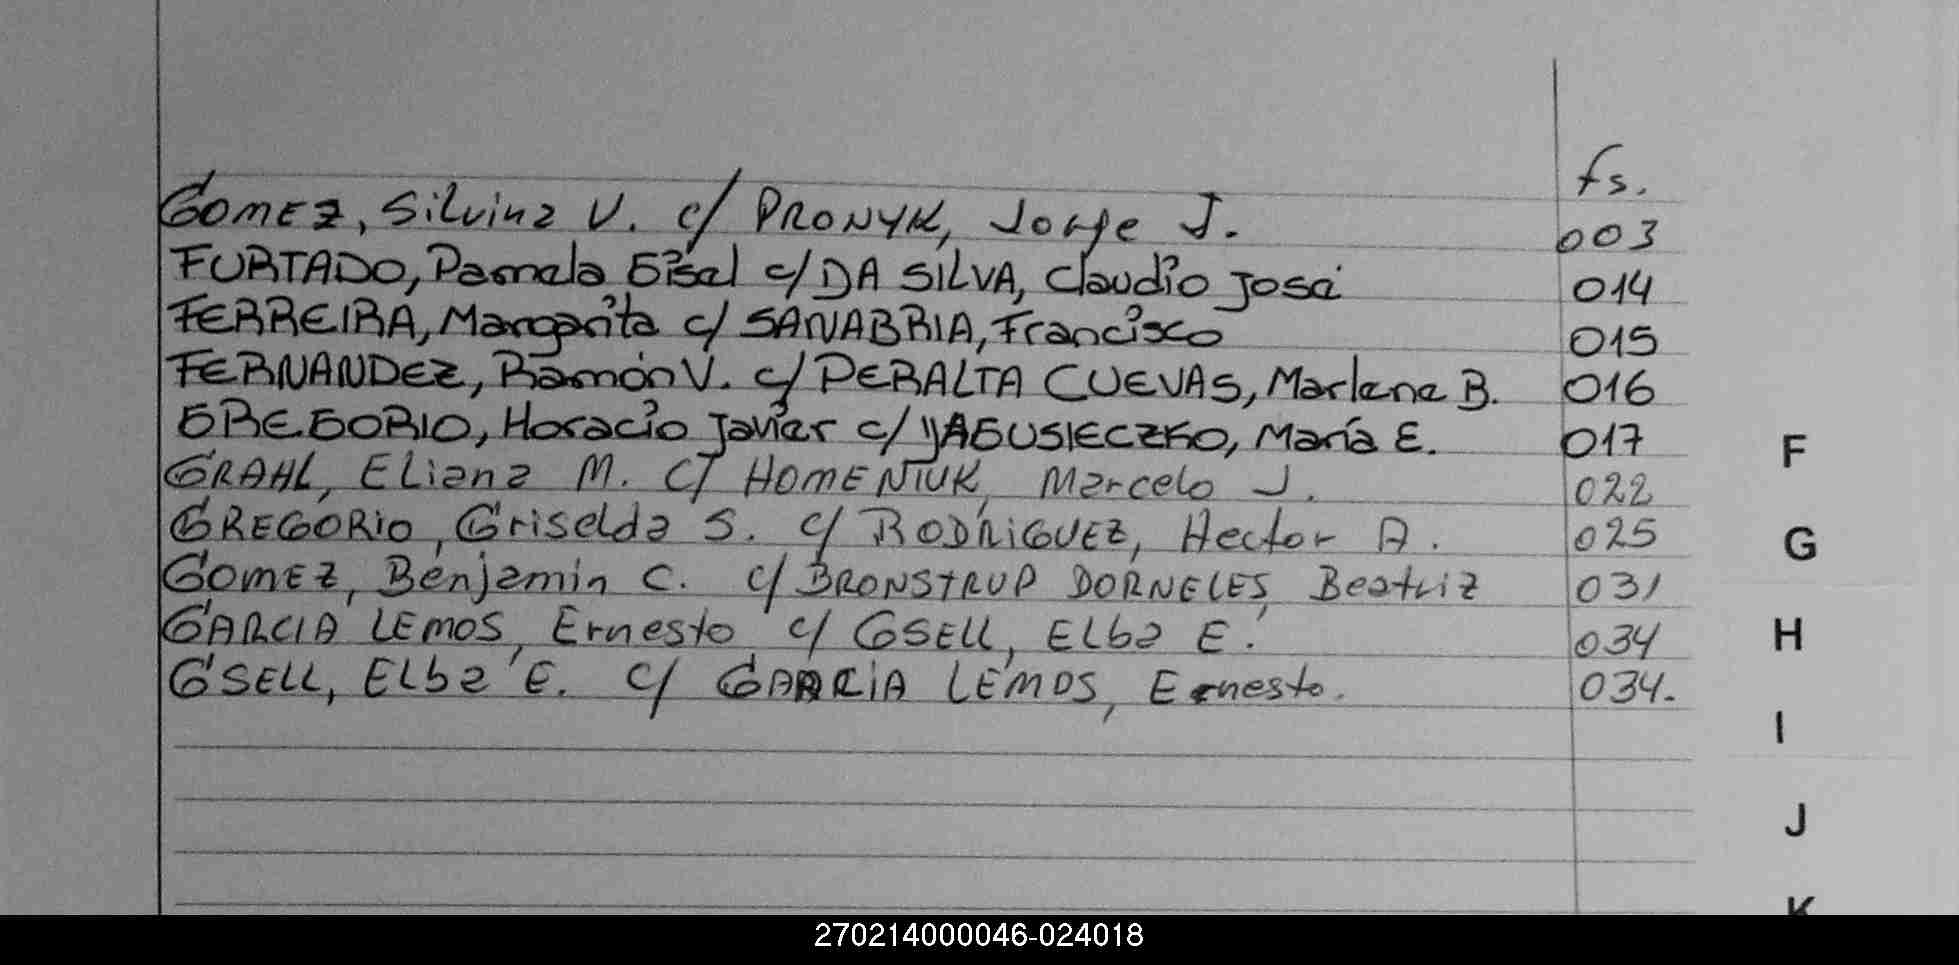 fs.
GOMEZ, Silvina V. c/ PRONYK, Jorge J. 003
FURTADO, Pamela Gisel c/ DA SILVA, Claudio José 014
FERREIRA, Margarita c/ SANABRIA, Francisco 015
FERNANDEZ, Ramón V. c/ PERALTA CUEVAS, Marlene B. 016
GREGORIO, Horacio Javier c/ YAGUSIECZKO, María E. 017
GRAHL, Eliana M. c/ HOMENIUK, Marcelo J. 022
GREGORIO, Griselda S. c/ RODRIGUEZ, Hector A. 025
GOMEZ, Benjamin C. c/ BRONSTRUP DORNELES, Beatriz 031
GARCIA LEMOS, Ernesto c/ GSELL, Elba E. 034
GSELL, Elba E. c/ GARCIA LEMOS, Ernesto. 034.
F
G
H
I
J
K
270214000046-024018